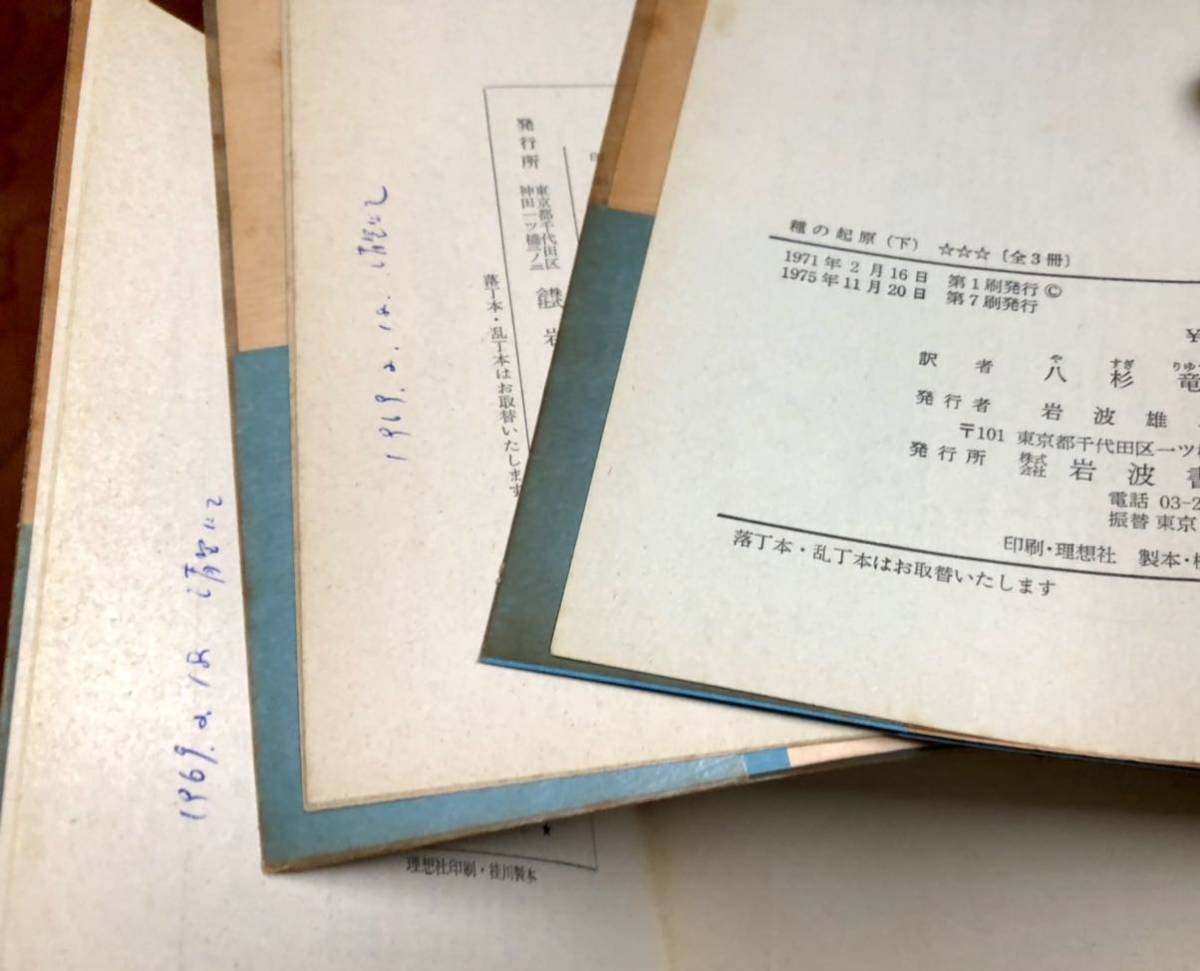 種の起原（下） ☆☆☆〔全3冊〕
1971年2月16日 第1刷発行Ⓒ
1975年11月20日 第7刷発行
¥
訳者 八杉竜
や すぎ りゆう
発行者 岩波雄
〒101 東京都千代田区一ツ
発行所 株式会社 岩波書
電話 03-2
振替 東京
印刷・理想社 製本・
落丁本・乱丁本はお取替いたします
発行所
東京都千代田区
神田一ツ橋二ノ三
株式会社 岩
落丁本・乱丁本はお取替いたします
1969.2.18.
1969.2.18
★
理想社印刷・桂川製本